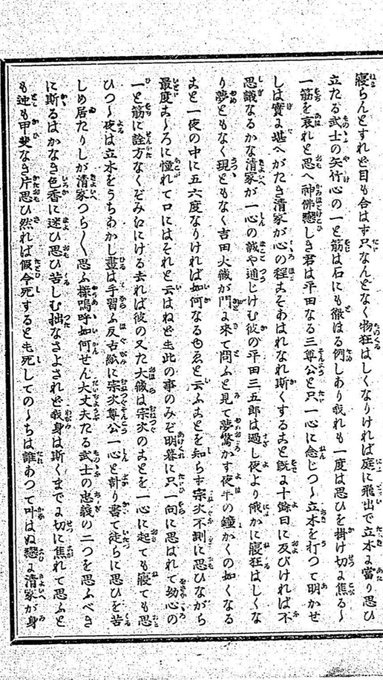 寝らんとすれど目も合はず只なんとなく物狂はしくなりければ庭に飛出で立木に當り思ひ
立たる武士の矢竹心の一と筋は石にも徹ほる例しあり我れも一度は思ひを掛け切に焦る〻
一筋を哀れと思へ神佛戀しき君は平田なる三尊公と只一心に念じつ〻立木を打つて明かせ
しは實に堪へがたき清家が心の程こそあはれなれ斯くすること既に十餘日に及びければ不
思議なるかな清家が一心の誠や通じけむ彼の平田三五郎は過し夜より俄かに寝狂はしくな
り夢ともなく現ともなく吉田大藏が門に來て問ふと見て夢驚かす夜半の鐘かくの如くなる
こと一夜の中に五六度なりければ如何なるゆゑと云ふことを知らず宗次不測に思ひながら
最度こ〻ろに憧れて口にはそれと云はねども此の事のみぞ明暮に只一向に思はれて幼心の
一と筋に詮方なくぞみにける去れば彼の又た大藏は宗次のことを一心に起ても寝ても思
ひつ〻夜は立木をうちあかし晝は手習ふ反古紙に宗次尊公一心と計り書て徒らに思ひを苦
しめ居たりしが清家つら〱思ふ樣嗚呼如何せん大丈夫たる武士の忠義の二つを思ふべき
に斯るはかなき色香に迷ひ思ひ苦しむ拙なさよされど我身は斯くまでに切に焦れて思ふと
も迚も甲斐なき片思ひ然れば假令死するとも死しての〻ちは誰あつて叶はぬ戀に清家が身